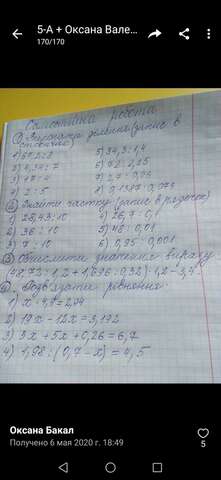 5-А + Оксана Вале...
170/170
Самостійна робота
① Виконати ділення (запис в
стовпчик)
1) 60,2:2 5) 34,3:1,4
2) 4,34:7 6) 72:2,25
3) 17:4
4) 2:5 8) 0,1317:0,073
② Знайти частку (запис в рядочок)
1) 28,43:10 4) 26,7:0,1
2) 36:10 5) 48:0,01
3) 7:10 6) 0,95:0,001
③ Обчислити значення виразу
(48,72:1,2+1,696:0,32)·1,2-3,4
④ Розв'язати рівняння.
1) x·4,8=2,04
2) 19x-12x=3,192
3) 3x+5x+0,26=6,7
4) 1,98:(0,7-x)=4,5
Оксана Бакал
Получено 6 мая 2020 г. 18:49
5